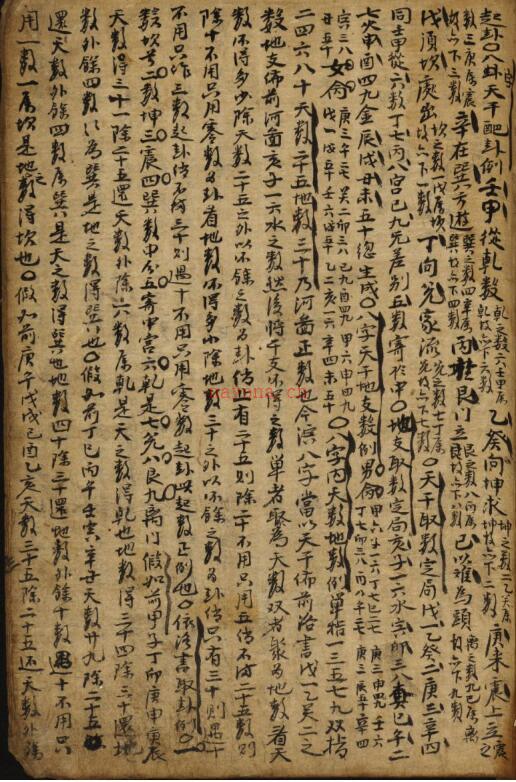 起卦○八卦天干配卦例壬甲從乾數乾之數六壬甲屬乾故下六數乙癸向坤求坤之數二乙癸屬坤故下二數庚來震上立震之
數三庚屬震故下三數辛在巽方遊巽之數四辛屬巽故下四數丙艮門立艮之數八丙屬艮故下八數己以離為頭離之數九己屬離故下九數
戊須坎處出坎之數一戊屬坎故下一數丁向兌家流兌之數七丁屬兌故下七數○天干取數定局戊一乙癸二庚三辛四
同壬甲從六數丁七丙八宮己九无差別五數寄於中○地支取數定局亥子一六水寅卯三八真巳午二
七火申酉四九金辰戌丑未五十總生成○八字天干地支數例男命甲六子一六丁七巳二七丁七卯三八丙八午二七庚三申四九壬六庚三辰五十辛四
寅三八丑五十女命庚三午二七戊一戌五十己九酉四九乙二亥一六○八字內天數地數例單指一三五七九双指
二四六八十天數二十五地數三十乃河畵正數也今演八字當以天干佈前洛書戊一乙癸二之
數地支佈前河畵亥子一六水之數然後將干支所得之數單者聚為天數双者聚為地數看天
數所得多少除天數二十五之外以所餘之數為卦倘止有二十五則除二十不用只用五倘不均二十五數則
除十不用只用零數為卦看地數所得多少除地數三十之外以所餘之數為卦倘只有三十則過十
不用只作三數起卦倘不均三十則過十不用只用零數起卦此起數正例也○依洛書取卦例○一
數坎号二數坤三震四巽數中分五寄中宮六乾是七兌八艮九離門假如前甲子丁卯庚申庚辰
天數得三十一除二十五還天數外除六數屬乾是天之數得乾也地數得三十四除三十還地
數外餘四數四為巽是地之數得巽也○假如前丁巳丙午壬寅辛丑天數廿九除二十五
還天數外餘四數屬巽是天之數得巽也地數四十除三十還地數外餘十數過十不用只
用一數一屬坎是地數得坎也○假如前庚午戊戌己酉乙亥天數三十五除二十五还天數外餘